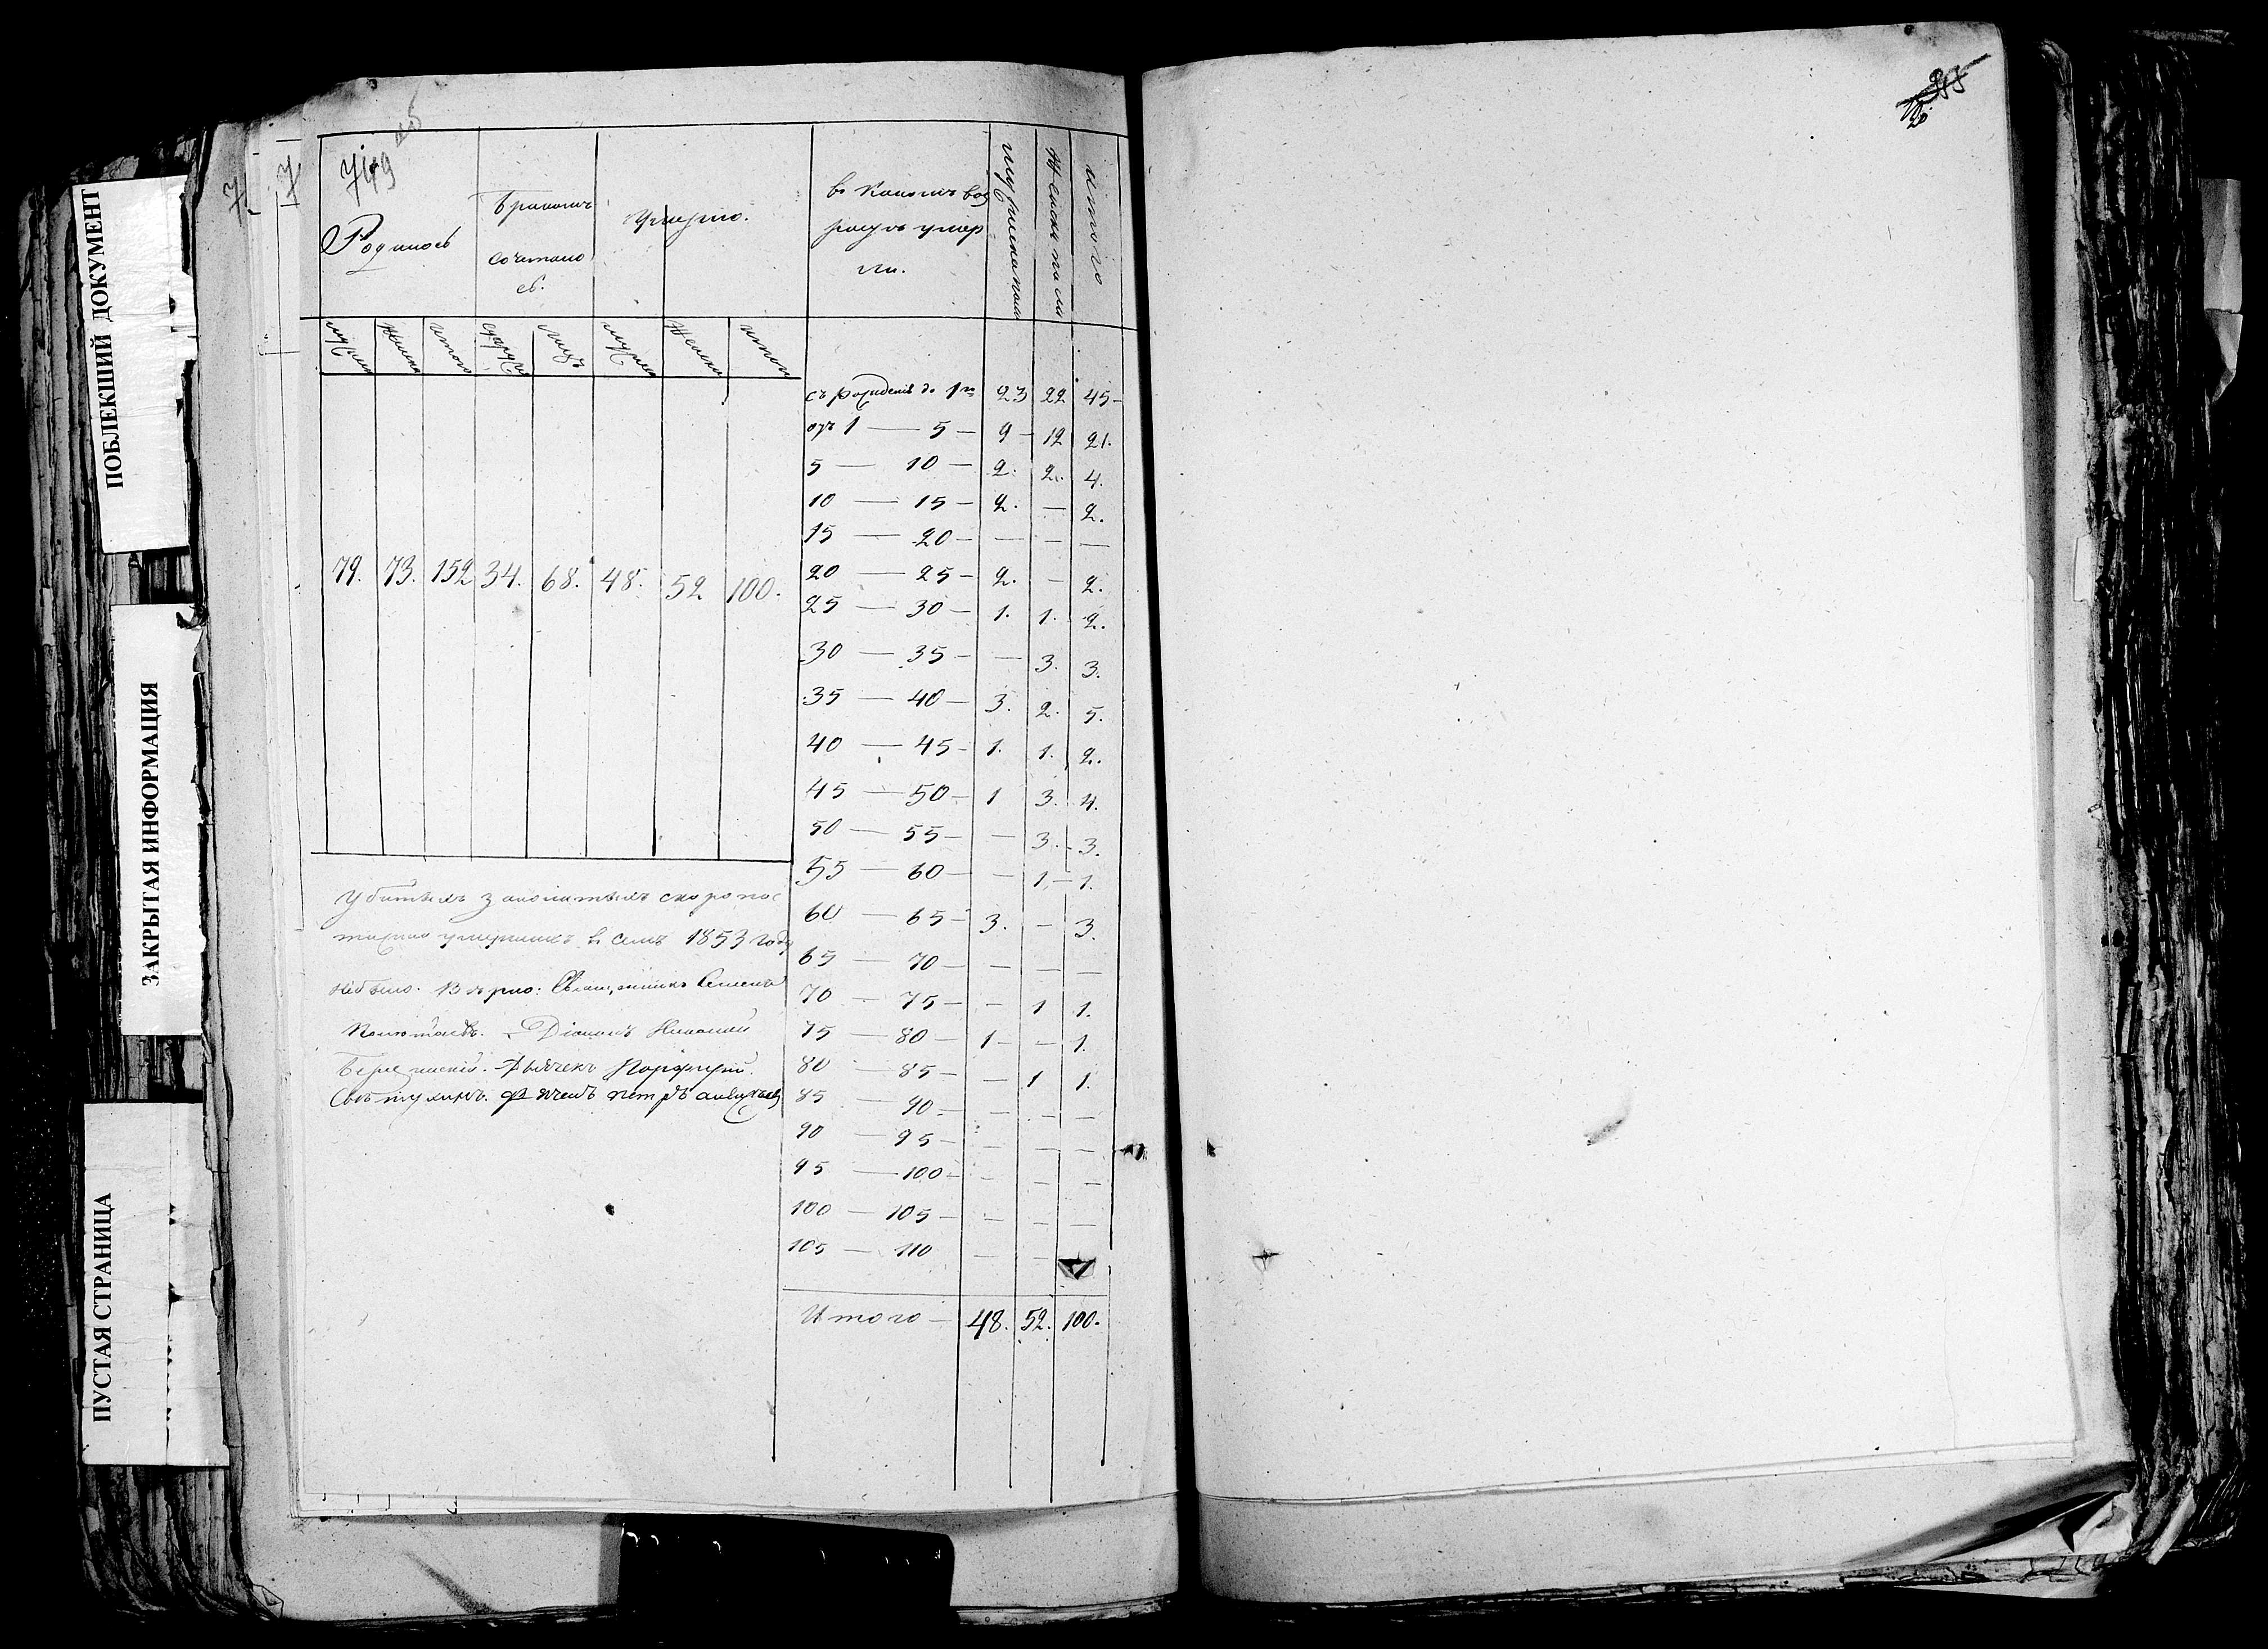 ПОБЛЕКШИЙ ДОКУМЕНТ
ЗАКРЫТАЯ ИНФОРМАЦИЯ
ПУСТАЯ СТРАНИЦА
Родилось
Бракомъ
сочетало
сь.
Умерло.
въ какомъ воз
растѣ умер
ли.
мужеска пола
женска пола
итого
мужска женска итого супруж лицъ мужска женска итого
79. 73. 152 34. 68. 48. 52 100.
съ рожденія до 1го 23 22 45 —
отъ 1 — 5 — 9 — 12 21.
5 — 10 — 2. 2. 4.
10 — 15 — 2. — 2.
15 — 20 — — — —
20 — 25 — 2. — 2.
25 — 30 — 1. 1. 2.
30 — 35 — — 3. 3.
35 — 40 — 3. 2. 5.
40 — 45 — 1. 1. 2.
45 — 50 — 1 3. 4.
50 — 55 — — 3. 3.
55 — 60 — — 1. — 1.
60 — 65 — 3. — 3.
65 — 70 — — — —
70 — 75 — — 1 1.
75 — 80 — 1 — — 1.
80 — 85 — — 1 1.
85 — 90 — — — —
90 — 95 — — — —
95 — 100 — — — —
100 — 105 — — — —
105 — 110 — —
Итого — 48. 52. 100.
Убитыхъ скоропос
тижно умершихъ въ семъ 1853 году
небыло. Вѣрно: Священникъ Семенъ
Діаконъ Николай
Дьячекъ Порфирій
Петръ